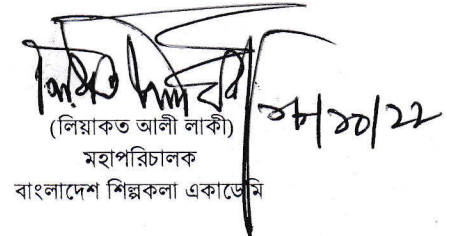 ১৮/১০/২২
(লিয়াকত আলী লাকী)
মহাপরিচালক
বাংলাদেশ শিল্পকলা একাডেমি